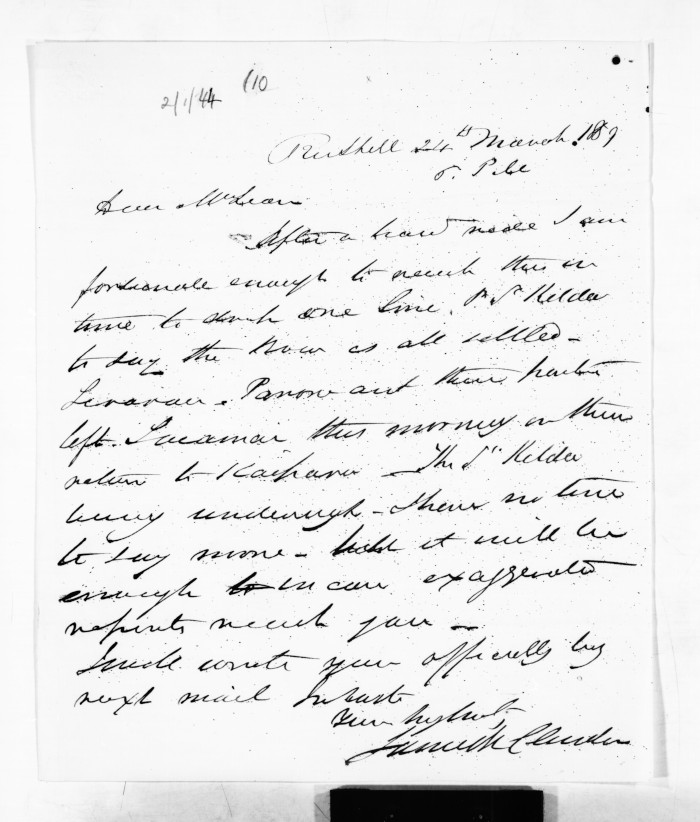 2/1/44 (10
Russell 24th March 189
6. P.M
Dear McLean
After a hard ride I am
fortunate enough to reach this in
time to drop one line. Pr St Kilda
to say the Row is all settled -
and their parties
left this morning on their
return to Kaipara - The St Kilda
being underweigh - I have no time
to say more - it will be
enough to in case exaggerated
reports reach you -
I will write you officially by
next mail In haste
Yours
James R Clendon